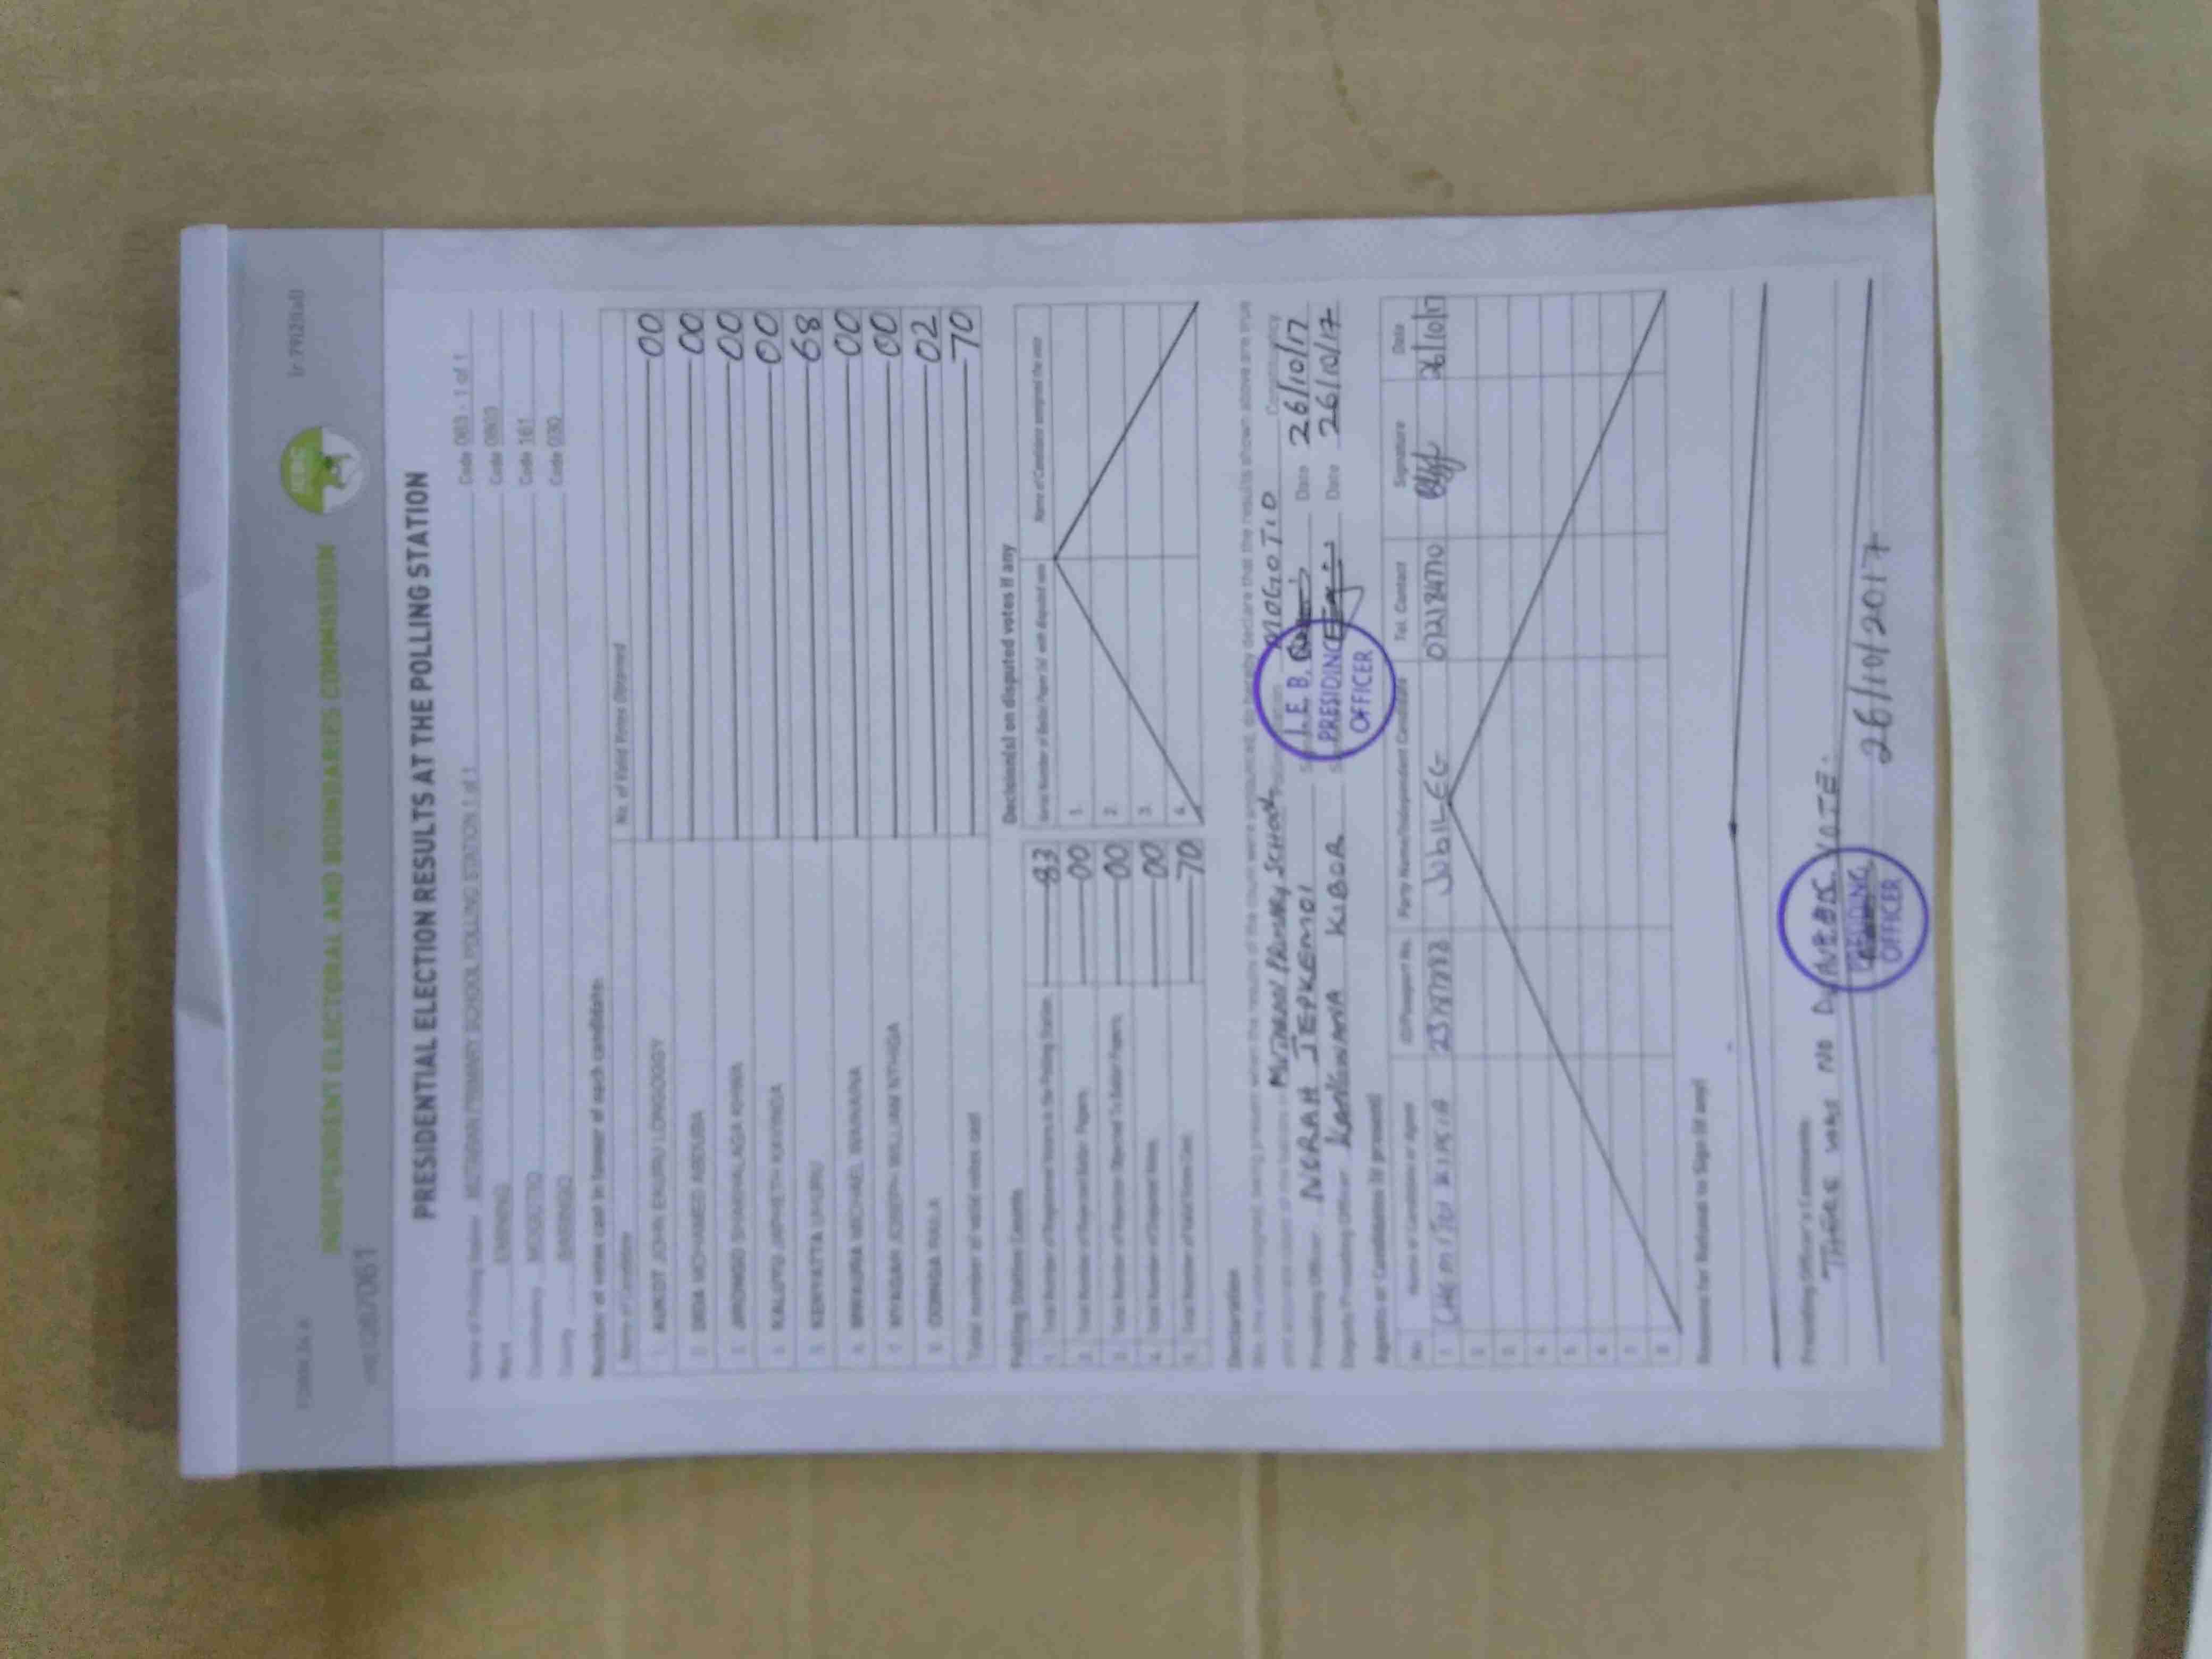 FORM 34 A
(r.79(2)(a))
INDEPENDENT ELECTORAL AND BOUNDARIES COMMISSION
IEBC
PRESIDENTIAL ELECTION RESULTS AT THE POLLING STATION
Name of Polling Station PRIMARY SCHOOL POLLING STATION 1 of 1 Code 063 - 1 of 1
Ward EMINING Code
Constituency MOGOTIO Code 161
County BARINGO Code 030
Number of votes cast in favour of each candidate:
Name of Candidate No. of Valid Votes Obtained
1. AUKOT JOHN EKURU LONGOGGY 00
2. DIDA MOHAMED ABDUBA 00
3. JIRONGO SHAKHALAGA KHWA 00
4. KALUYU JAPHETH KAVINGA 00
5. KENYATTA UHURU 68
6. MWAURA MICHAEL WAINAINA 00
7. NYAGAH JOSEPH WILLIAM NTHIGA 00
8. ODINGA RAILA 02
Total number of valid votes cast 70
Polling Station Counts
1. Total Number of Registered Voters in the Polling Station
2. Total Number of Rejected Ballot Papers 00
3. Total Number of Rejection Objected To Ballot Papers 00
4. Total Number of Disputed Votes 00
5. Total Number of Valid Votes Cast 70
Decision(s) on disputed votes if any
Serial Number of Ballot Paper (s) with disputed vote Name of Candidate assigned the vote
1.
2.
3.
4.
Declaration
We, the undersigned, being present when the results of the count were announced, do hereby declare that the results shown above are true
PRIMARY SCHOOL MOGOTIO Constituency
Presiding Officer NORAH JEPKEMOI Date 26/10/17
Deputy Presiding Officer KIBOR Date 26/10/17
I.E.B.
PRESIDING
OFFICER
Agents or Candidates (if present)
No. Name of Candidate or Agent ID/Passport No. Party Name/Independent Candidate Tel. Contact Signature Date
1. JUBILEE 26/10/17
2.
3.
4.
5.
6.
7.
8.
Reasons for Refusal to Sign (if any)
Presiding Officer's Comments:
THERE WAS NO VOTE.
PRESIDING
OFFICER
26/10/2017